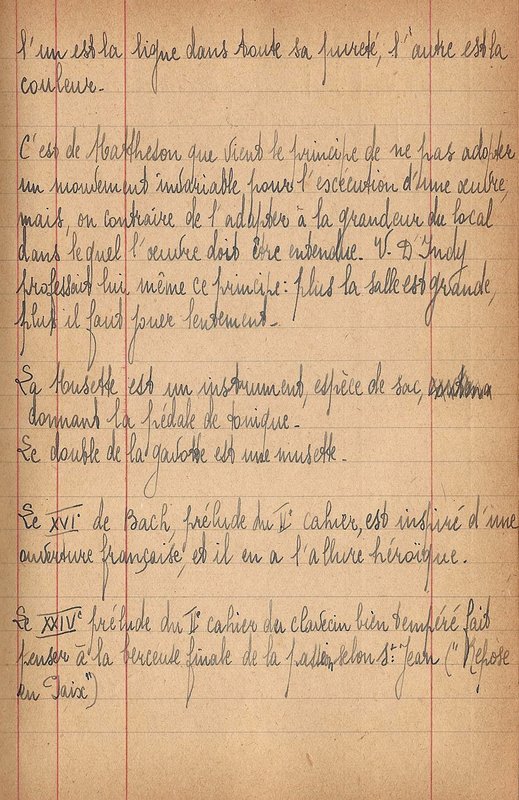 l'un est la ligne dans toute sa pureté, l'autre est la
couleur.
C'est de Mattheson que vient le principe de ne pas adopter
un mouvement invariable pour l'excécution d'une œuvre,
mais, au contraire de l'adapter à la grandeur du local
dans lequel l'œuvre doit être entendue. V. D'Indy
professait lui même ce principe: plus la salle est grande,
plus il faut jouer lentement.
La Musette est un instrument, espèce de sac,
donnant la pédale de tonique.
Le double de la gavotte est une musette.
Le XVIe de Bach, prélude du IIe cahier, est inspiré d'une
ouverture française, et il en a l'allure héroïque.
Le XXIVe prélude du Ie cahier du clavecin bien tempéré fait
penser à la berceuse finale de la passion selon St Jean ("Repose
en Paix")